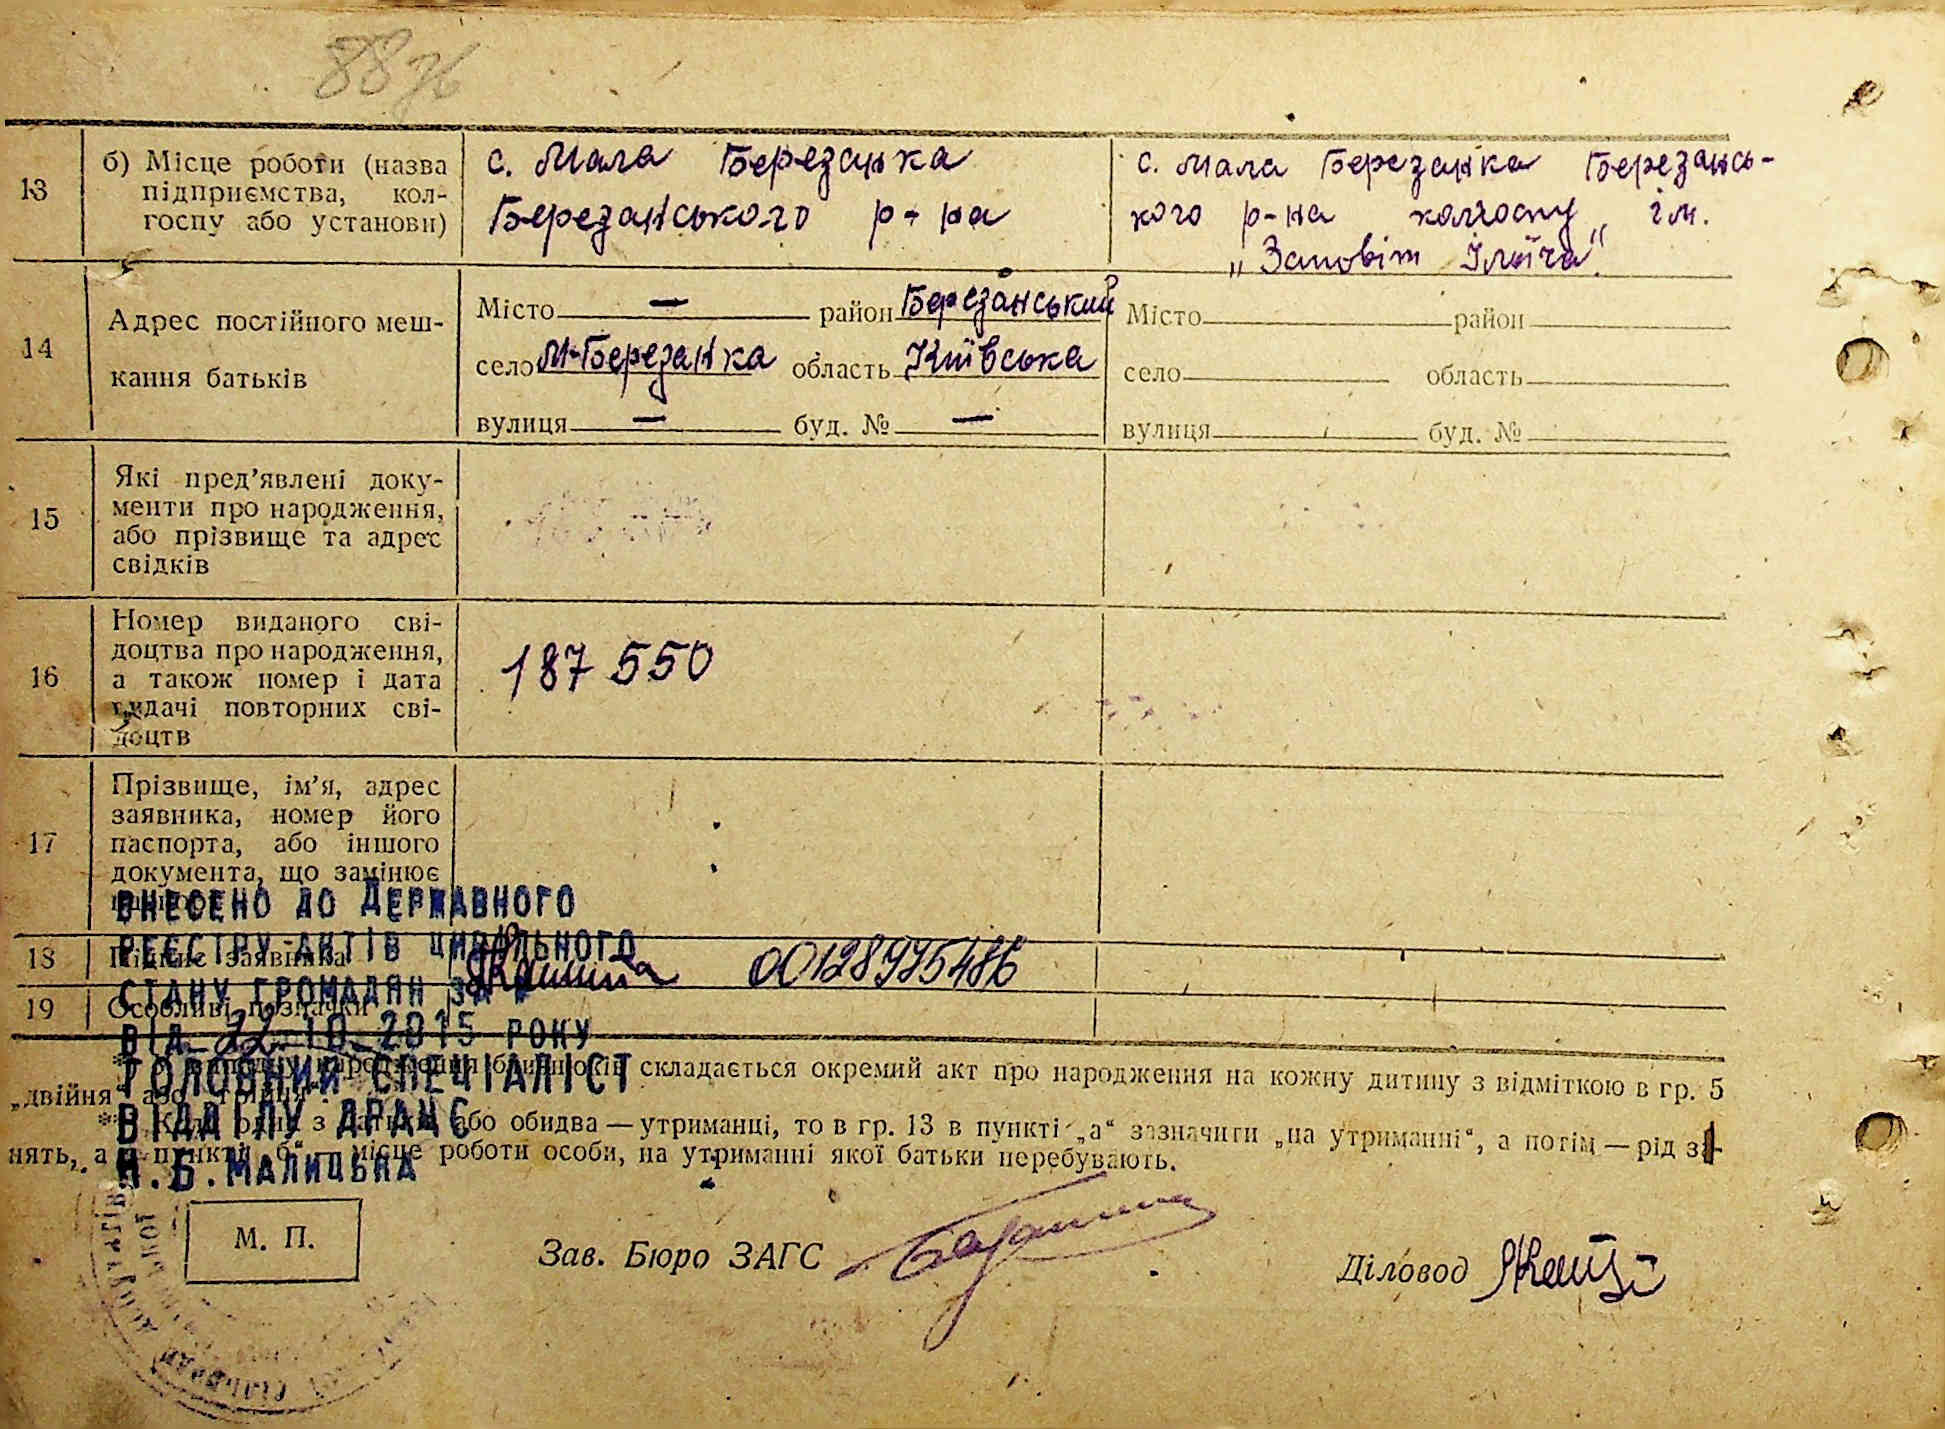 88
13
б) Місце роботи (назва
підприємства, кол-
госпу або установи)
с. Мала Березанка
Березанського р-на
с. Мала Березанка Березансь-
кого р-на колгоспу ім.
„Заповіт Ілліча"
14
Адрес постійного меш-
кання батьків
Місто — район Березанський
село М-Березанка область Київська
вулиця — буд. № —
Місто район
село область
вулиця буд. №
15
Які пред'явлені доку-
менти про народження,
або прізвище та адрес
свідків
16
Номер виданого сві-
доцтва про народження,
а також номер і дата
видачі повторних сві-
доцтв
187550
17
Прізвище, ім'я, адрес
заявника, номер його
паспорта, або іншого
документа, що замінює
ВНЕСЕНО ДО ДЕРЖАВНОГО
РЕЄСТРУ АКТІВ ЦИВІЛЬНОГО
18
Підпис заявника
00128975486
СТАНУ ГРОМАДЯН ЗА №
19
Особливі позначки
ВІД 22.10.2015 РОКУ
ГОЛОВНИЙ СПЕЦІАЛІСТ
ВІДДІЛУ ДРАЦС
Н.Б.МАЛИЦЬКА
народження близнюків складається окремий акт про народження на кожну дитину з відміткою в гр. 5
„двійня" або
** Коли один з батьків або обидва — утриманці, то в гр. 13 в пункті „а" зазначити „на утриманні", а потім — рід за-
нять, а в пункті „б" — місце роботи особи, на утриманні якої батьки перебувають.
М. П.
Зав. Бюро ЗАГС
Діловод